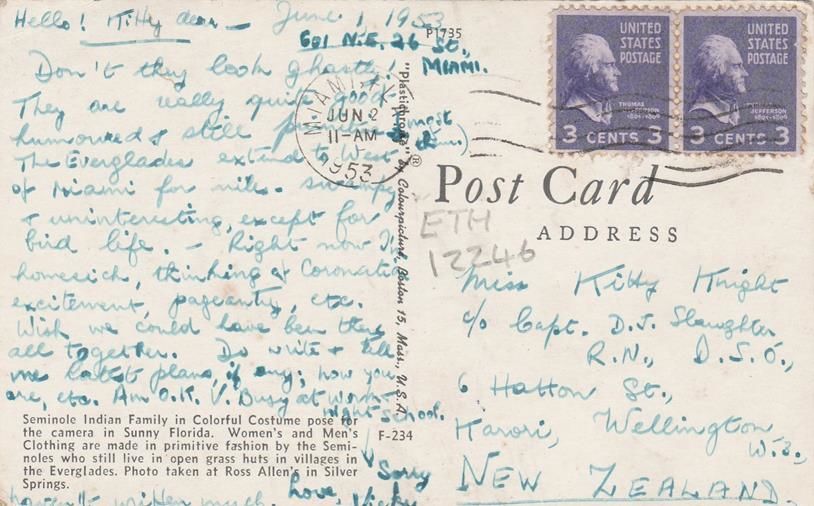 Hello! Kitty dear — June 1 1953
601 N.E. 26 St.,
MIAMI.
Don't they look ghastly!
They are really quite good
humoured & still (most
of them.)
The Everglades extend to West
of Miami for mls. swampy
& uninteresting, except for
bird life. — Right now I'm
homesick, thinking of Coronation
excitement, pageantry, etc.
Wish we could have been there
all together. Do write & tell
me latest plans, if any; how you
are, etc. Am O.K. V. Busy at work +
night school.
Sorry
haven't written much.
Love, Vicky
Seminole Indian Family in Colorful Costume pose for
the camera in Sunny Florida. Women's and Men's
Clothing are made in primitive fashion by the Semi-
noles who still live in open grass huts in villages in
the Everglades. Photo taken at Ross Allen's in Silver
Springs.
F-234
P1735
"Plastichrome"® by Colourpicture, Boston 15, Mass., U.S.A.
MIAMI
JUN 2
11-AM
1953
UNITED
STATES
POSTAGE
THOMAS
JEFFERSON
1801-1809
3 CENTS 3
UNITED
STATES
POSTAGE
THOMAS
JEFFERSON
1801-1809
3 CENTS 3
Post Card
ADDRESS
ETH
12246
Miss Kitty Knight
c/o Capt. D.J. Slaughter
R.N., D.S.O.,
6 Hatton St.,
Karori, Wellington
W.3.,
NEW ZEALAND.